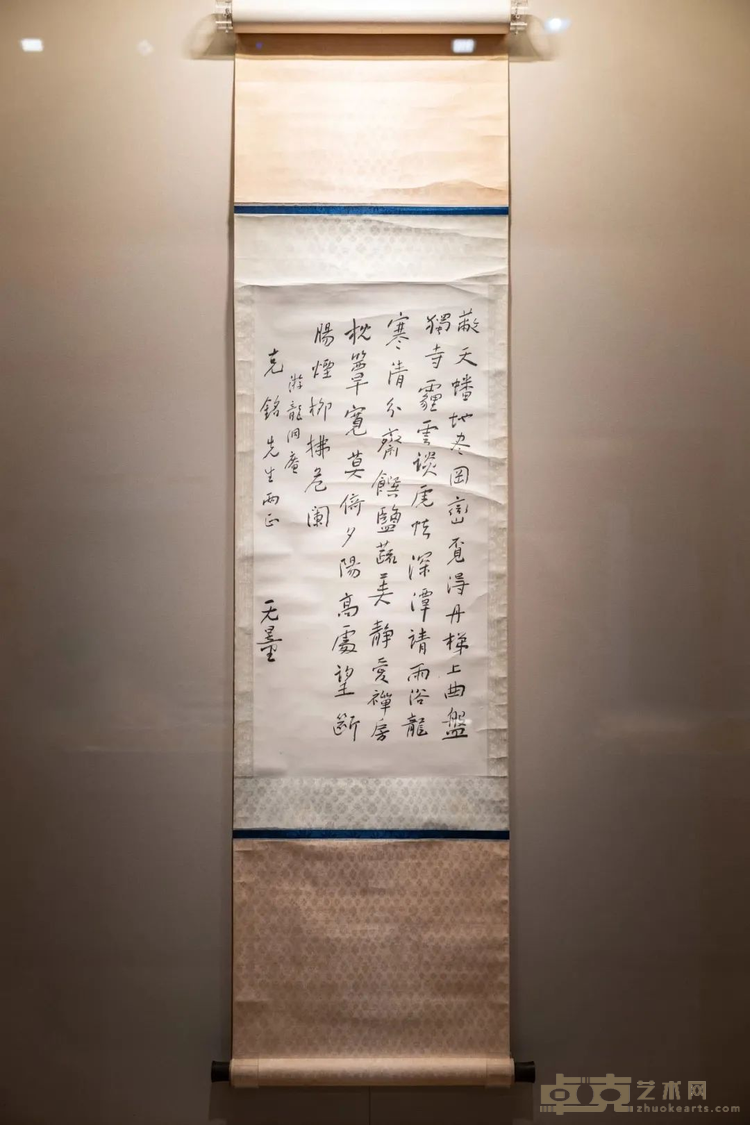 蔽天蟠地尽岡巒覓得丹梯上曲盤
獨寺霾雲談虎怯深潭請雨浴龍
寒清分齋饌鹽蔬美靜愛禪房
枕簟寬莫倚夕陽高處望斷
腸煙柳拂危闌
游龍洞庵
克銘先生兩正
无量
卓克艺术网
zhuokearts.com